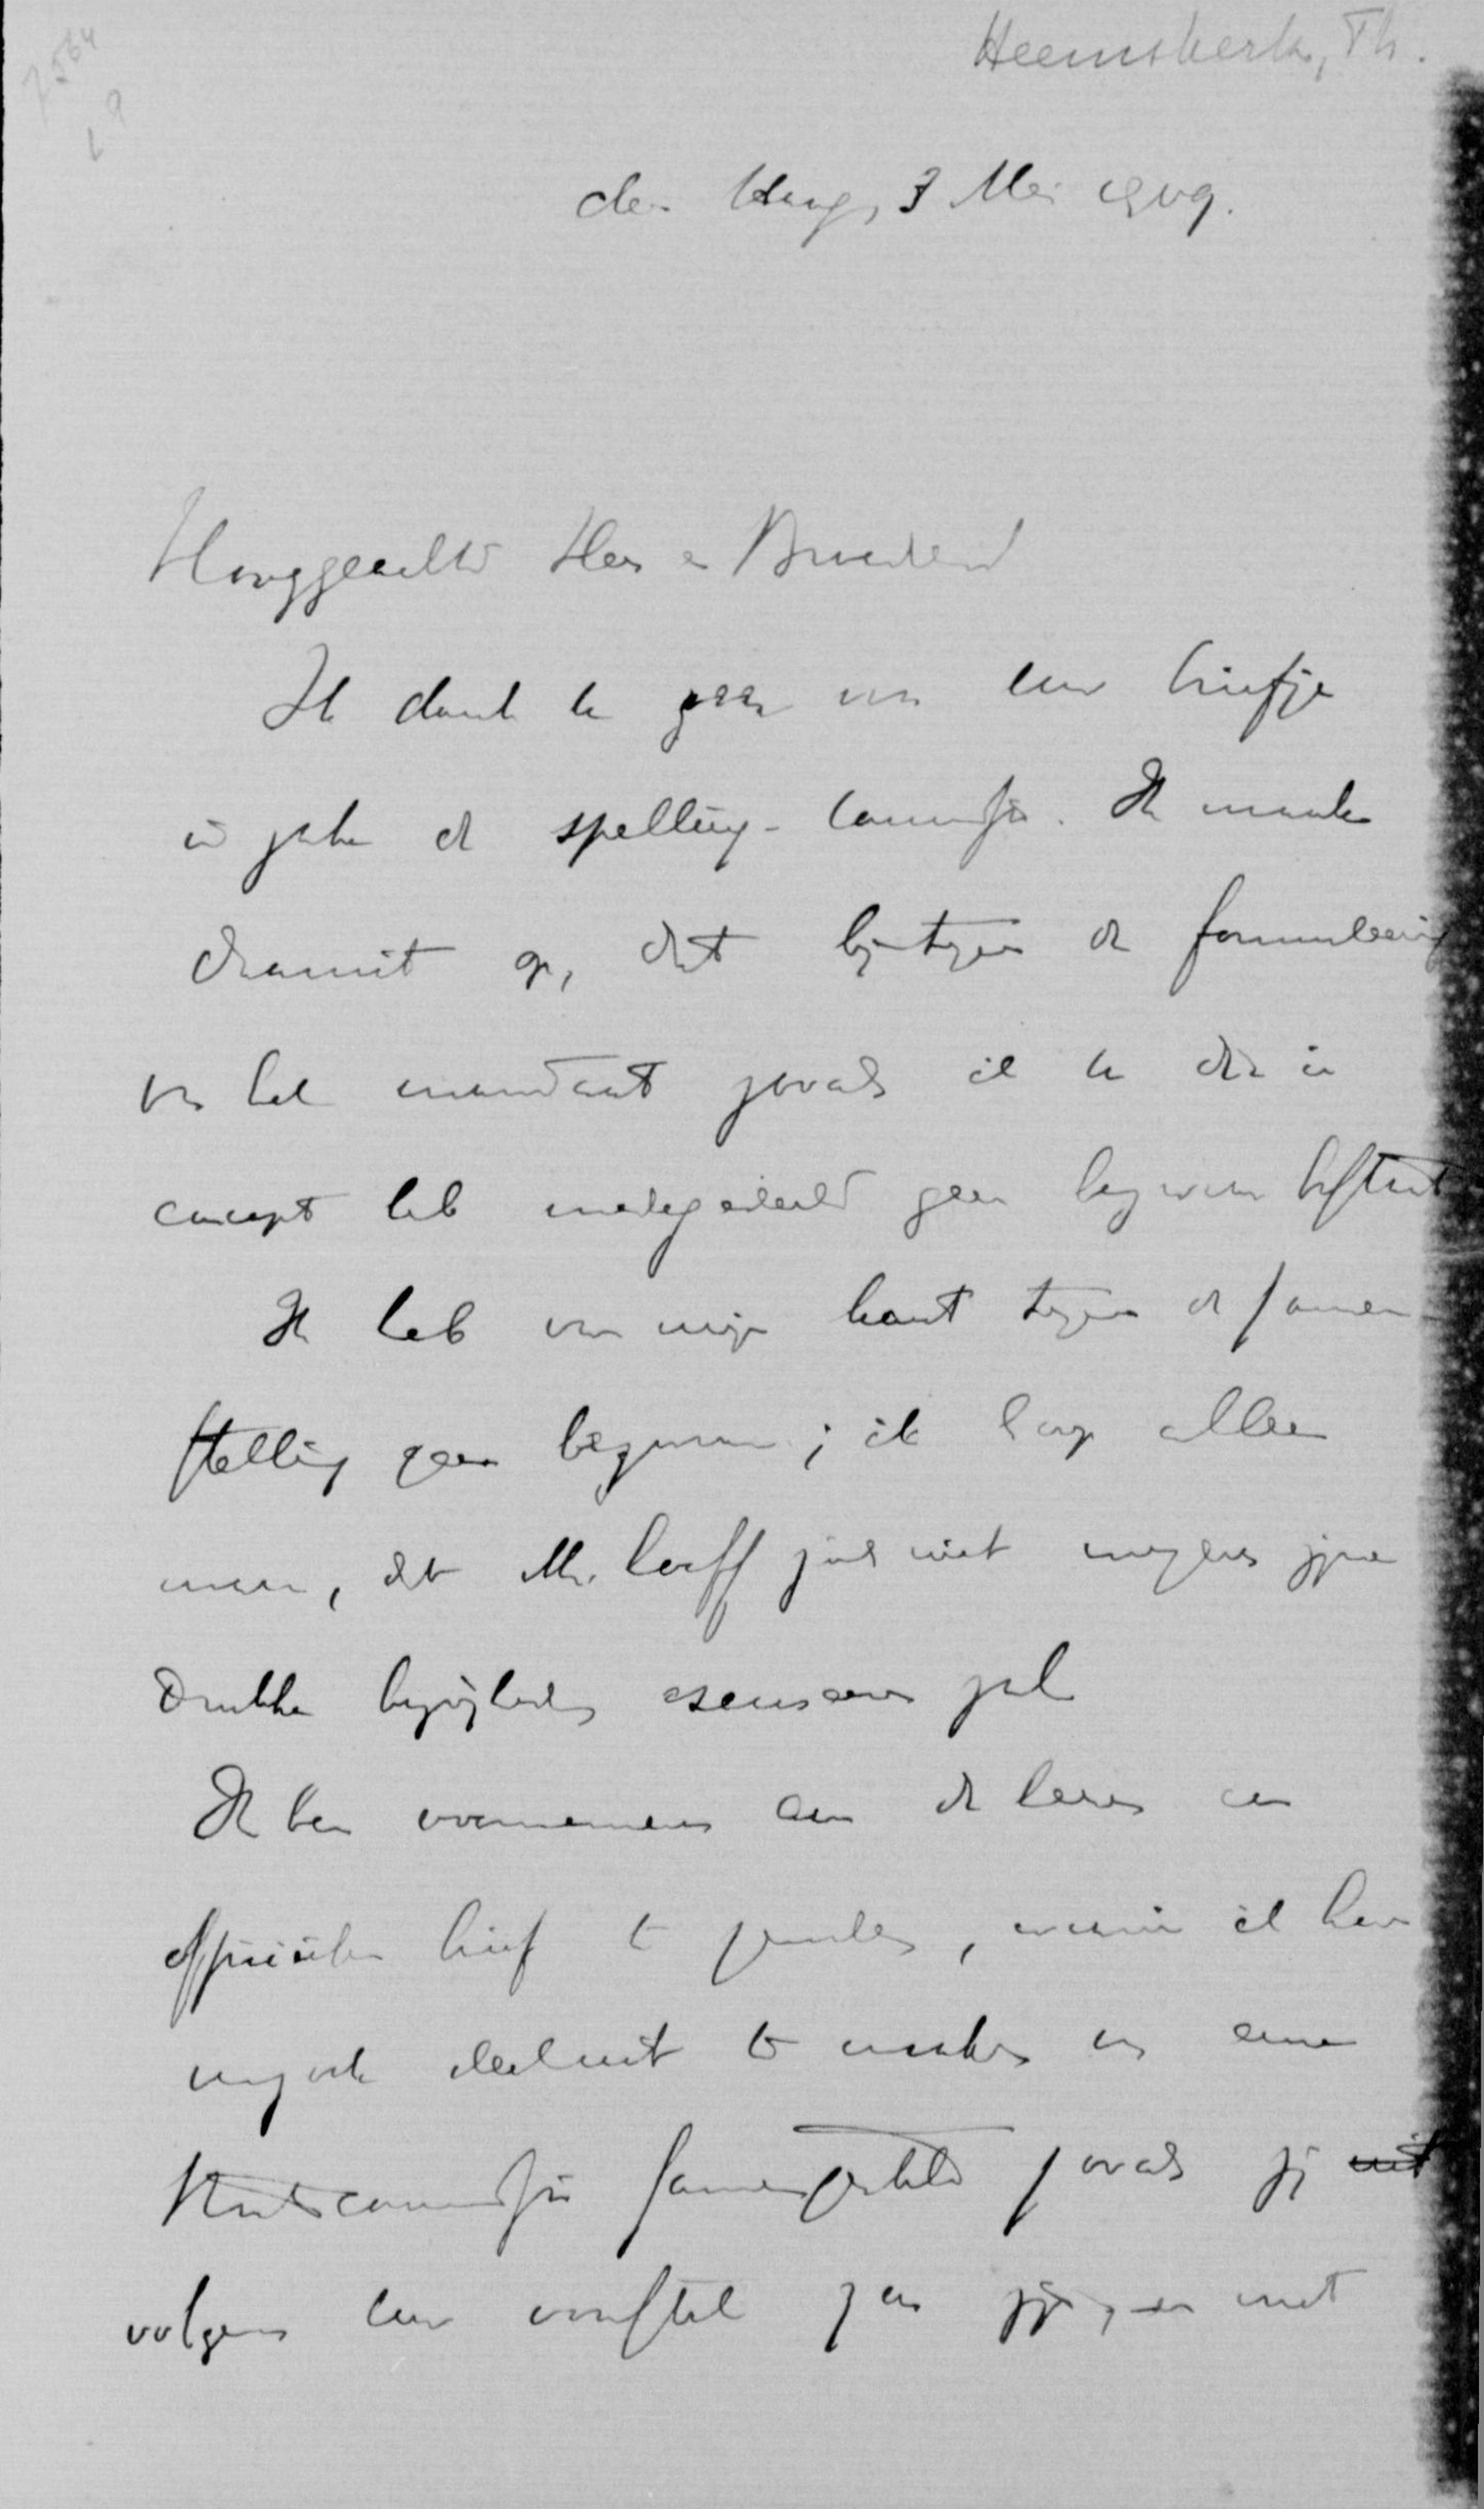 7564
L 9
Heemskerk, Th.
den Haag, 3 Mei 1909.
Hooggeachte Heer en Broeder
Ik dank U zeer voor Uw briefje
in zake de spelling-commissie. Ik maak
daaruit op, dat bij U tegen de formuleering
van het mandaat zooals ik U die in
concept heb medegedeeld geen bezwaar bestaat
Ik heb van mijn kant tegen de samen-
stelling geen bezwaar; ik hoop alleen
maar, dat Mr. Loeff zich niet wegens zijne
drukke bezigheden excuseeren zal
Ik ben voornemens aan de heeren een
officieelen brief te zenden, waarin ik hen
deel uit te maken van eene
Staatscommissie samengesteld zooals zij
volgens Uw voorstel zou zijn, en met